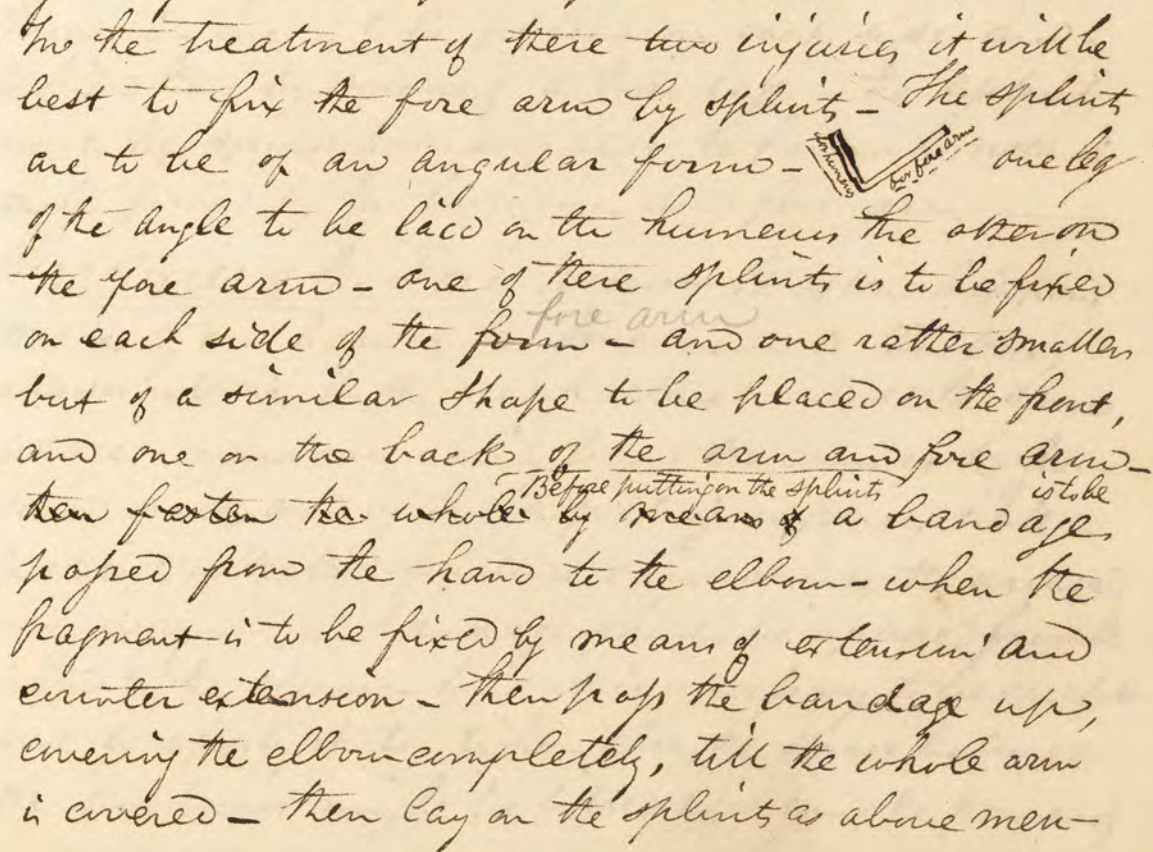 In the treatment of these two injuries it will be
best to fix the fore arm by splints – The splints
are to be of an angular form – for humerus for fore arm one leg
of the angle to be laid on the humerus the other on
the fore arm – one of these splints is to be fixed
fore arm
on each side of the form – and one rather smaller
but of a similar shape to be placed on the front,
and one on the back of the arm and fore arm –
Before putting on the splints is to be
then fasten the whole by means of a bandage
passed from the hand to the elbow – when the
fragment is to be fixed by means of extension and
counter extension – then pass the bandage up,
covering the elbow completely, till the whole arm
is covered – then lay on the splints as above men-